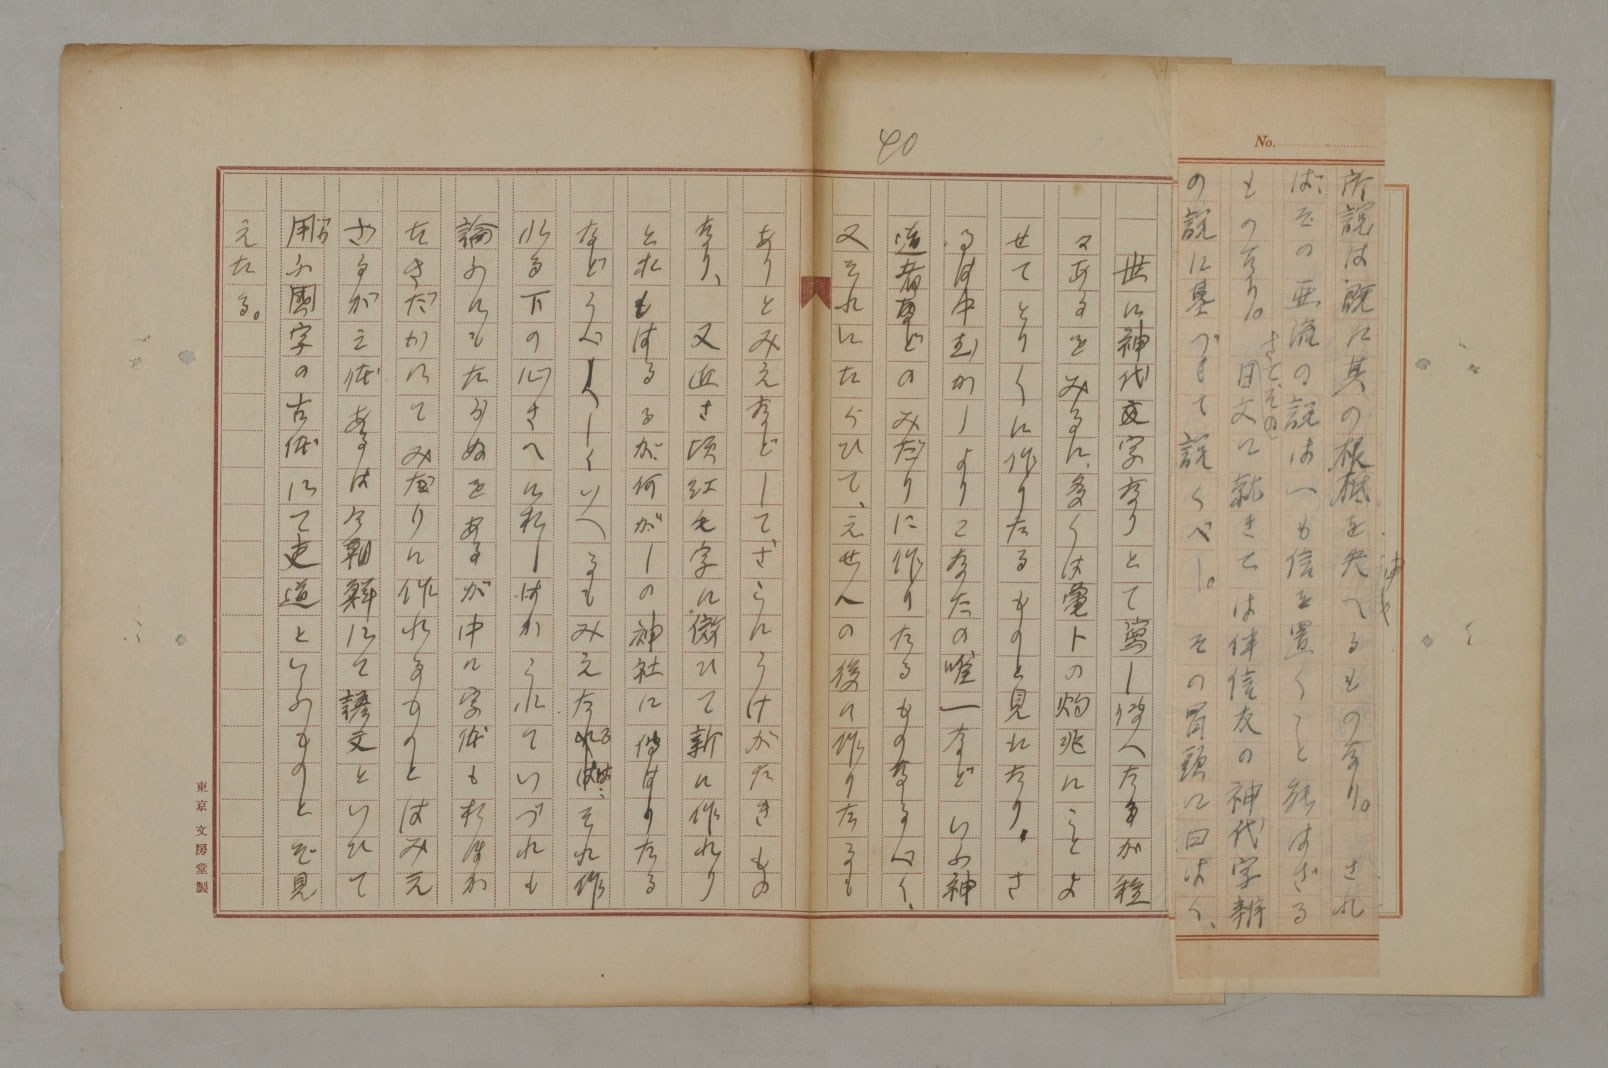 40
No.
所説は既に其の根柢を失へるものなり。され
ばその亜流の説は一も信を置くこと能はざる
ものなり。さてその目文に就きては伴信友の神代字辨
の説に基づきて説くべし。その冒頭に曰はく、
世に神代文字なりとて寫し傳へたるが種
々あるをみるに、多くは龜卜の灼兆にことよ
せてとりくに作りたるものと見れたり。さ
るは中むかしよりこなたの唯一などいふ神
道者などのみだりに作りたるものなるべく、
又それにたぐひて、えせ人の後に作りたるも
ありとみえなどしてざらにうけがたきもの
なり、又近き頃紅毛字に傚ひて新に作れり
とおもはるるが、何がしの神社に傳はりたる
などうべ〳〵しくいへるもみえたるは、それ作
れる下の心さへにおしはかられていづれも
論ふにもたらぬをあるが中に字体もおほか
たさだかにてみだりに作れるものとはみえ
ざるが二体あるは今朝鮮にて諺文といひて
用ふ國字の古体にて吏道といふものとぞ見
えたる。
東京 文房堂製